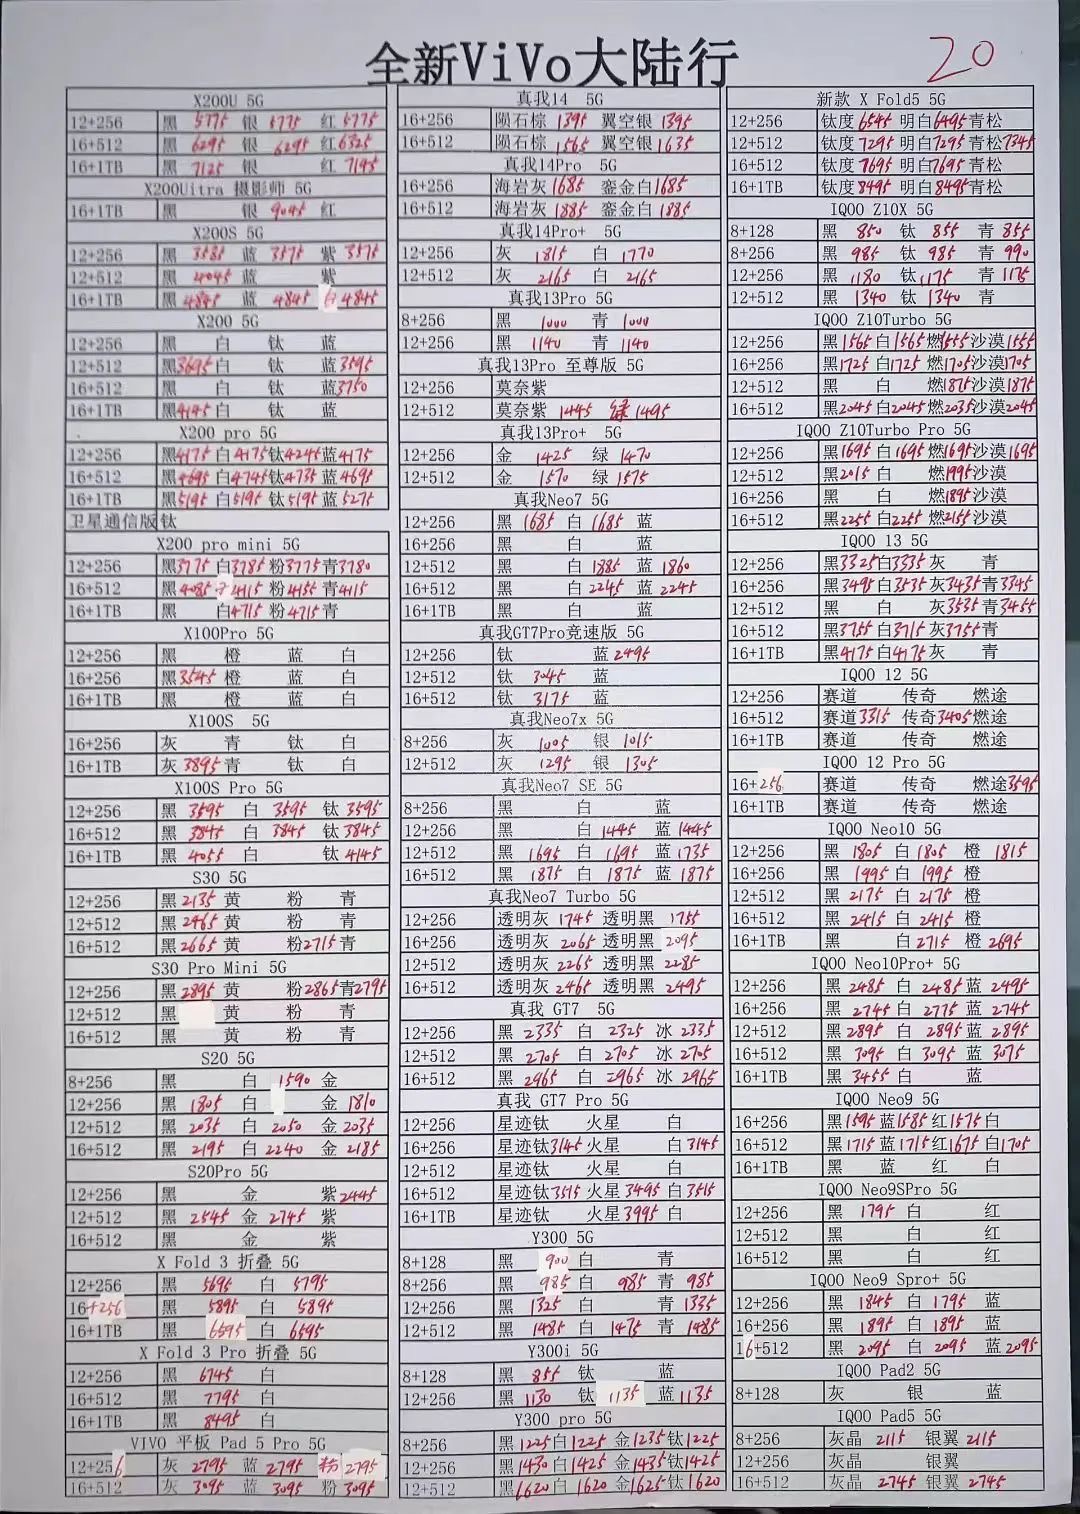 全新ViVo大陆行
20
X200U 5G
12+256 黑 5775 银 5775 红 5775
16+512 黑 6295 银 6295 红 6325
16+1TB 黑 7125 银 红 7195
X200Uitra 摄影师 5G
16+1TB 黑 银 9045 红
X200S 5G
12+256 黑 3585 蓝 3575 紫 3575
12+512 黑 4045 蓝 紫
16+1TB 黑 4845 蓝 4845 白 4845
X200 5G
12+256 黑 白 钛 蓝
12+512 黑3695 白 钛 蓝3595
16+512 黑 白 钛 蓝3750
16+1TB 黑4145 白 钛 蓝
X200 pro 5G
12+256 黑4175 白4175 钛4245 蓝4175
16+512 黑4695 白4745 钛4735 蓝4695
16+1TB 黑5195 白5195 钛5195 蓝5275
卫星通信版 钛
X200 pro mini 5G
12+256 黑3775 白3785 粉3775 青3780
16+512 黑4085 4115 粉4155 青4115
16+1TB 黑 白4715 粉4715 青
X100Pro 5G
12+256 黑 橙 蓝 白
16+256 黑3545 橙 蓝 白
16+1TB 黑 橙 蓝 白
X100S 5G
16+256 灰 青 钛 白
16+1TB 灰3895 青 钛 白
X100S Pro 5G
12+256 黑 3595 白 3595 钛 3595
16+512 黑 3845 白 3845 钛 3845
16+1TB 黑 4055 白 钛 4145
S30 5G
12+256 黑2135 黄 粉 青
12+512 黑2465 黄 粉 青
16+512 黑2665 黄 粉2715 青
S30 Pro Mini 5G
12+256 黑2895 黄 粉2865 青2795
12+512 黑 黄 粉 青
16+512 黑 黄 粉 青
S20 5G
8+256 黑 白 1590 金
12+256 黑 1805 白 金 1810
12+512 黑 2035 白 2050 金 2035
16+512 黑 2195 白 2240 金 2185
S20Pro 5G
12+256 黑 金 紫2445
12+512 黑 2545 金 2745 紫
16+512 黑 金 紫
X Fold 3 折叠 5G
12+256 黑 5695 白 5795
16+256 黑 5895 白 5895
16+1TB 黑 6595 白 6595
X Fold 3 Pro 折叠 5G
12+256 黑 6745 白
16+512 黑 7795 白
16+1TB 黑 8495 白
VIVO 平板 Pad 5 Pro 5G
12+256 灰 2795 蓝 2795 粉 2795
16+512 灰 3095 蓝 3095 粉 3095
真我14 5G
16+256 陨石棕 1395 翼空银 1395
16+512 陨石棕 1565 翼空银 1635
真我14Pro 5G
16+256 海岩灰 1685 銮金白1685
16+512 海岩灰 1885 銮金白 1885
真我14Pro+ 5G
12+256 灰 1815 白 1770
12+512 灰 2165 白 2165
真我13Pro 5G
8+256 黑 1000 青 1000
12+256 黑 1140 青 1140
真我13Pro 至尊版 5G
12+256 莫奈紫
12+512 莫奈紫 1445 绿 1495
真我13Pro+ 5G
12+256 金 1425 绿 1470
12+512 金 1570 绿 1575
真我Neo7 5G
12+256 黑 1685 白 1685 蓝
16+256 黑 白 蓝
12+512 黑 白 1885 蓝 1860
16+512 黑 白 2245 蓝 2245
16+1TB 黑 白 蓝
真我GT7Pro竞速版 5G
12+256 钛 蓝2495
12+512 钛 3045 蓝
16+512 钛 3175 蓝
真我Neo7x 5G
8+256 灰 1005 银 1015
12+512 灰 1295 银 1305
真我Neo7 SE 5G
8+256 黑 白 蓝
12+256 黑 白 1445 蓝 1445
12+512 黑 1695 白 1695 蓝 1735
16+512 黑 1875 白 1875 蓝 1875
真我Neo7 Turbo 5G
12+256 透明灰 1745 透明黑 1755
16+256 透明灰 2065 透明黑 2095
12+512 透明灰 2265 透明黑 2285
16+512 透明灰 2465 透明黑 2495
真我 GT7 5G
12+256 黑 2335 白 2325 冰 2335
12+512 黑 2705 白 2705 冰 2705
16+512 黑 2965 白 2965 冰 2965
真我 GT7 Pro 5G
12+256 星迹钛 火星 白
16+256 星迹钛3145 火星 白3145
12+512 星迹钛 火星 白
16+512 星迹钛3515 火星 3495 白3515
16+1TB 星迹钛 火星3995 白
Y300 5G
8+128 黑 900 白 青
8+256 黑 985 白 985 青 985
12+256 黑 1325 白 青 1335
12+512 黑 1485 白 1475 青 1485
Y300i 5G
8+128 黑 855 钛 蓝
12+256 黑 1130 钛 1135 蓝1135
Y300 pro 5G
8+256 黑1225 白1225 金1235 钛1225
12+256 黑1430 白1425 金1435 钛1425
12+512 黑1620 白 1620 金1625 钛 1620
新款 X Fold5 5G
12+256 钛度 6545 明白6495 青松
12+512 钛度 7295 明白7295 青松7345
16+512 钛度 7695 明白7695 青松
16+1TB 钛度 8495 明白 8495 青松
IQOO Z10X 5G
8+128 黑 850 钛 855 青 855
8+256 黑 985 钛 985 青 990
12+256 黑 1180 钛 1175 青 1175
12+512 黑 1340 钛 1340 青
IQOO Z10Turbo 5G
12+256 黑1565 白1565 燃1555 沙漠1555
16+256 黑1725 白1725 燃1705 沙漠1705
12+512 黑 白 燃1875 沙漠1875
16+512 黑2045 白2045 燃2035 沙漠2045
IQOO Z10Turbo Pro 5G
12+256 黑1695 白1695 燃1695 沙漠1695
12+512 黑2015 白 燃1995 沙漠
16+256 黑 白 燃1895 沙漠
16+512 黑2255 白2255 燃2155 沙漠
IQOO 13 5G
12+256 黑3325 白3335 灰 青
16+256 黑3495 白3535 灰3435 青3345
12+512 黑 白 灰3535 青3455
16+512 黑3755 白3715 灰3755 青
16+1TB 黑4175 白4175 灰 青
IQOO 12 5G
12+256 赛道 传奇 燃途
16+512 赛道3315 传奇3405 燃途
16+1TB 赛道 传奇 燃途
IQOO 12 Pro 5G
16+256 赛道 传奇 燃途3595
16+1TB 赛道 传奇 燃途
IQOO Neo10 5G
12+256 黑 1805 白 1805 橙 1815
16+256 黑 1995 白 1995 橙
12+512 黑 2175 白 2175 橙
16+512 黑 2415 白 2415 橙
16+1TB 黑 白 2715 橙 2695
IQOO Neo10Pro+ 5G
12+256 黑 2485 白 2485 蓝 2495
16+256 黑 2745 白 2775 蓝 2745
12+512 黑 2895 白 2895 蓝 2895
16+512 黑 3095 白 3095 蓝 3075
16+1TB 黑 3455 白 蓝
IQOO Neo9 5G
16+256 黑1595 蓝1585 红1575 白
16+512 黑1715 蓝1715 红1675 白1705
16+1TB 黑 蓝 红 白
IQOO Neo9SPro 5G
12+256 黑 1795 白 红
12+512 黑 白 红
16+512 黑 白 红
IQOO Neo9 Spro+ 5G
12+256 黑 1845 白 1795 蓝
16+256 黑 1895 白 1895 蓝
16+512 黑 2095 白 2095 蓝 2095
IQOO Pad2 5G
8+128 灰 银 蓝
IQOO Pad5 5G
8+256 灰晶 2115 银翼 2115
12+256 灰晶 银翼
16+512 灰晶 2745 银翼 2745